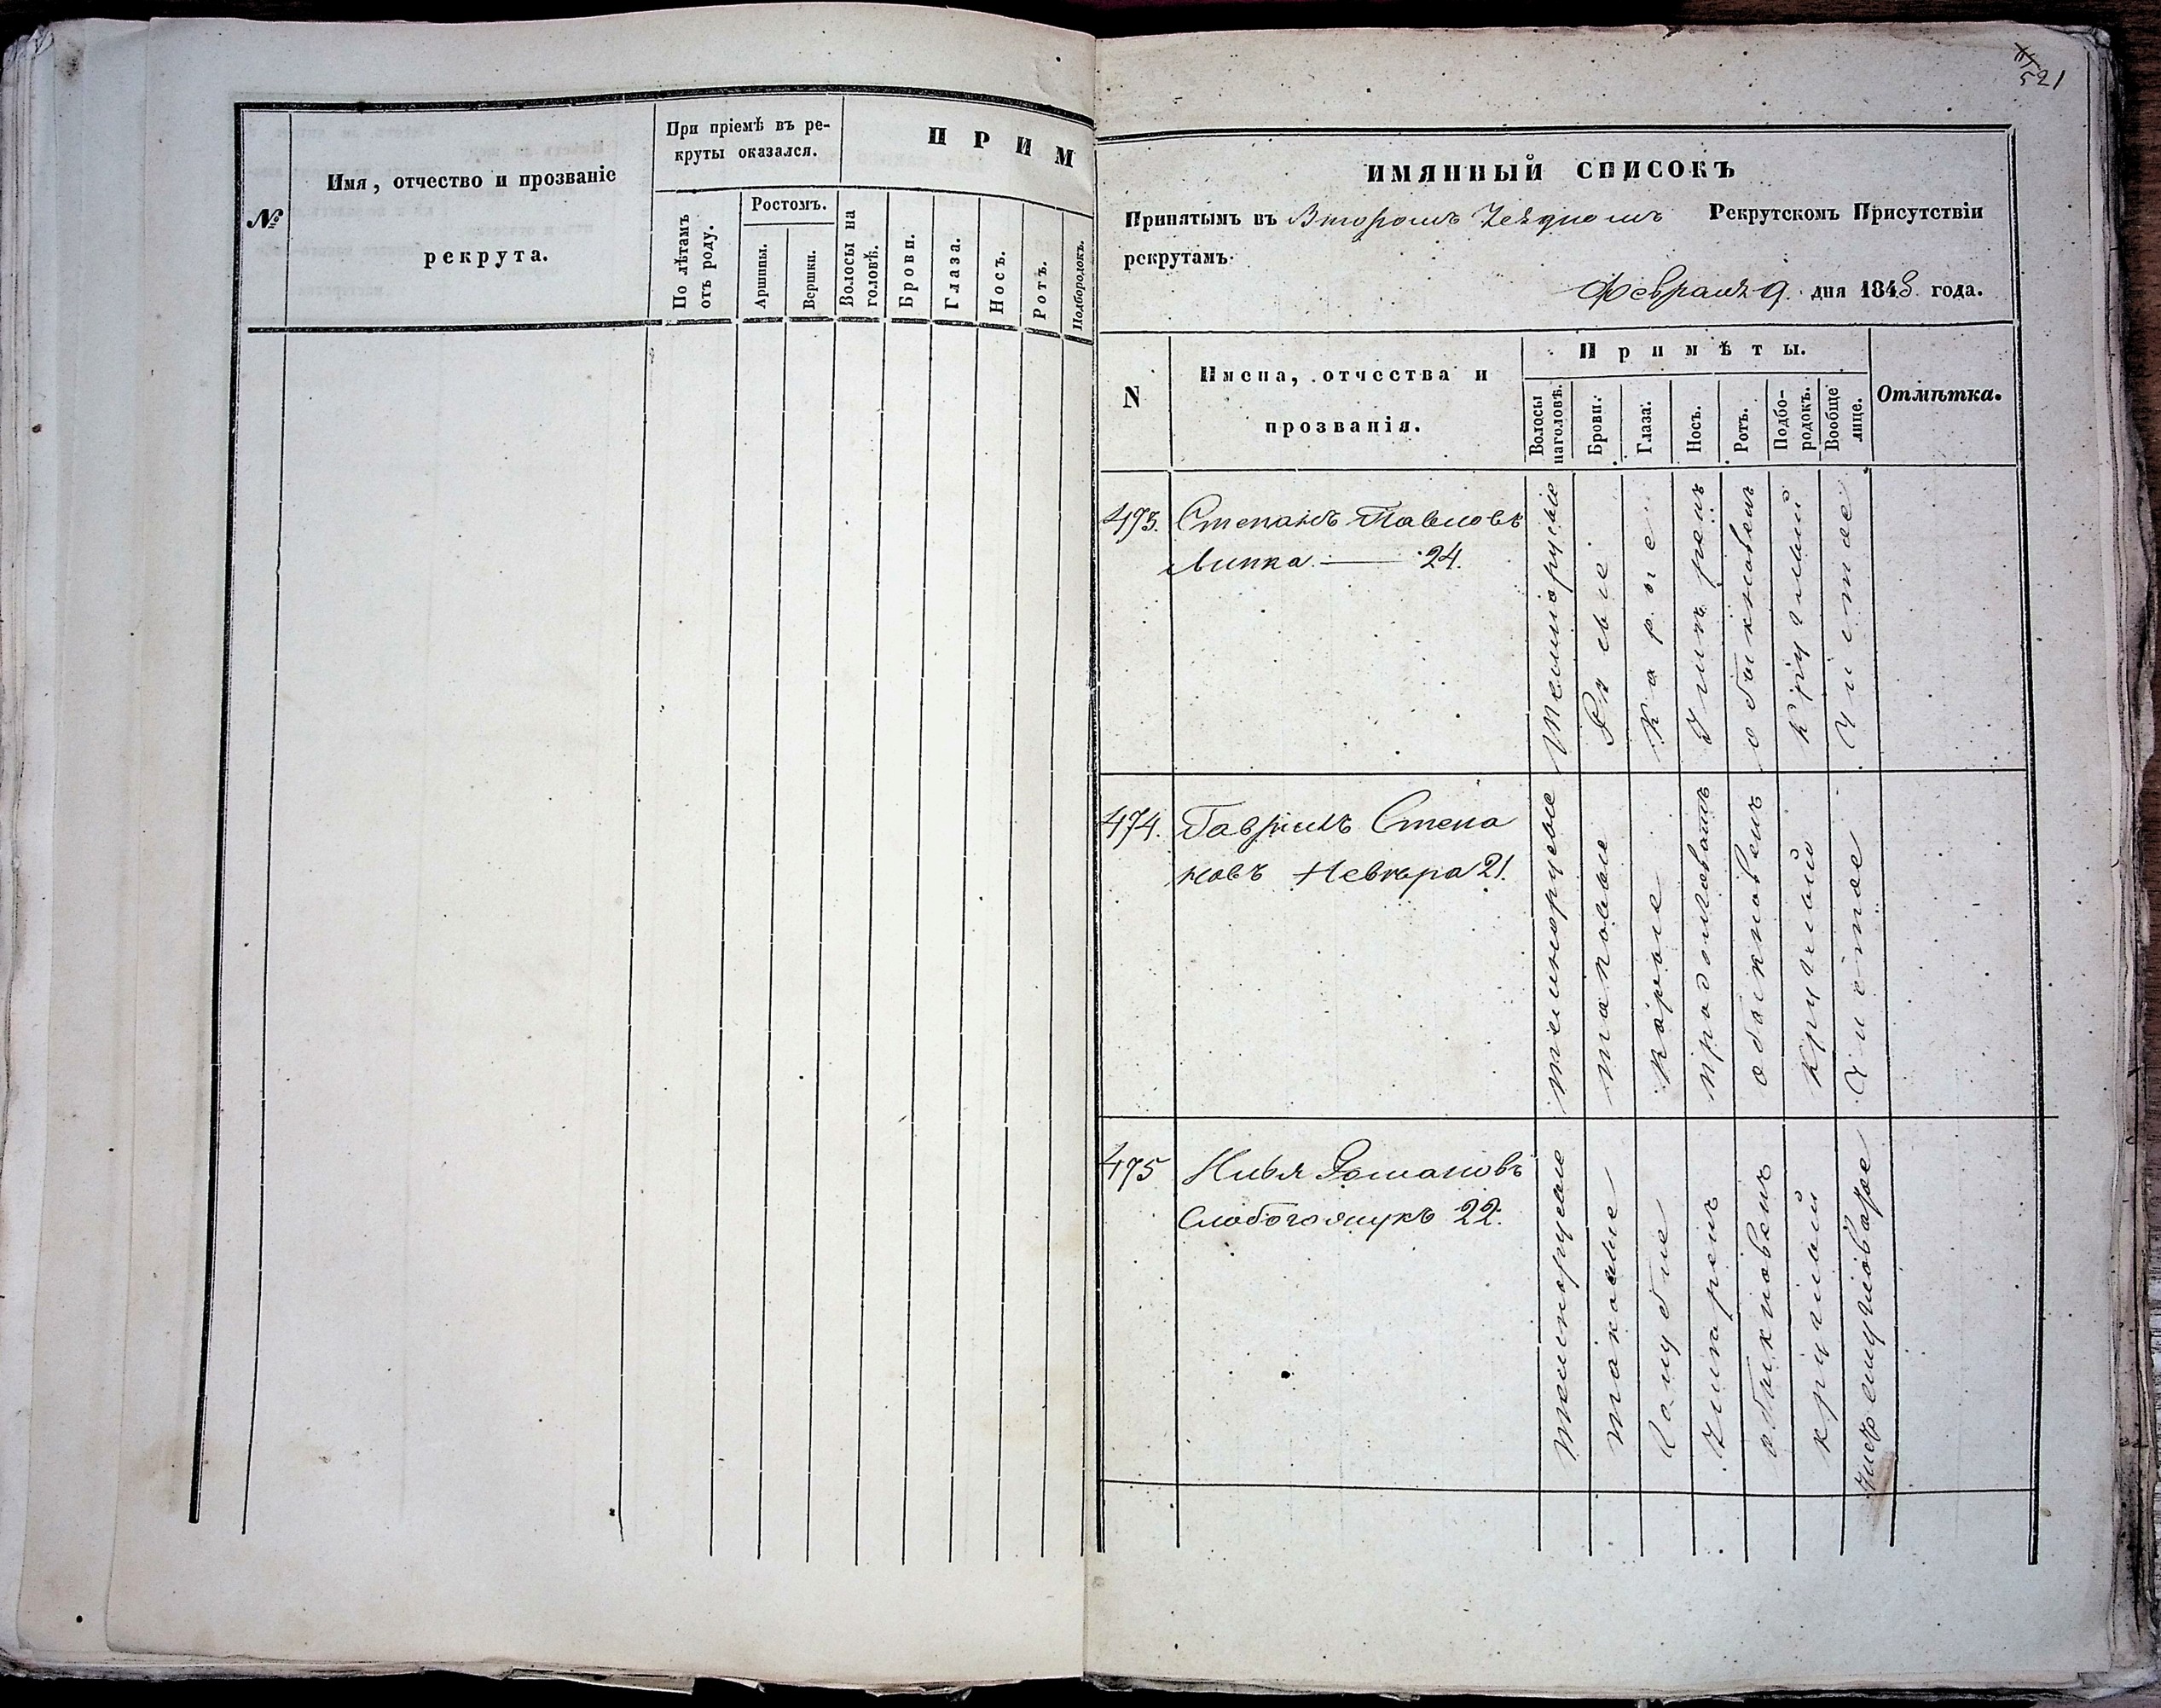 №
Имя, отчество и прозваніе
рекрута.
При пріемѣ въ ре-
круты оказался.
ПРИМ
По лѣтамъ
отъ роду.
Ростомъ.
Аршины.
Вершки.
Волосы на
головѣ.
Брови.
Глаза.
Носъ.
Ротъ.
Подбородокъ.
521
ИМЯННЫЙ СПИСОКЪ
Принятымъ въ Второмъ Уѣздномъ Рекрутскомъ Присутствіи
рекрутамъ
Февраля 9. дня 1848. года.
N
Имена, отчества и
прозванія.
Примѣты.
Волосы
наголовѣ.
Брови.
Глаза.
Носъ.
Ротъ.
Подбо-
родокъ.
Вообще
лице.
Отмѣтка.
473. Степанъ Павловъ
Липка. — 24.
Темнорусые
Русые
Карые
Умѣренъ
обыкновенъ
Круглый
Чистое
474. Гавріилъ Степа
новъ 21.
темнорусые
таковые
Карые
продолговатъ
обыкновенъ
Круглый
Чистое
475 Илья Романовъ
22.
темнорусые
таковые
Голубые
Умѣренъ
обыкновенъ
круглый